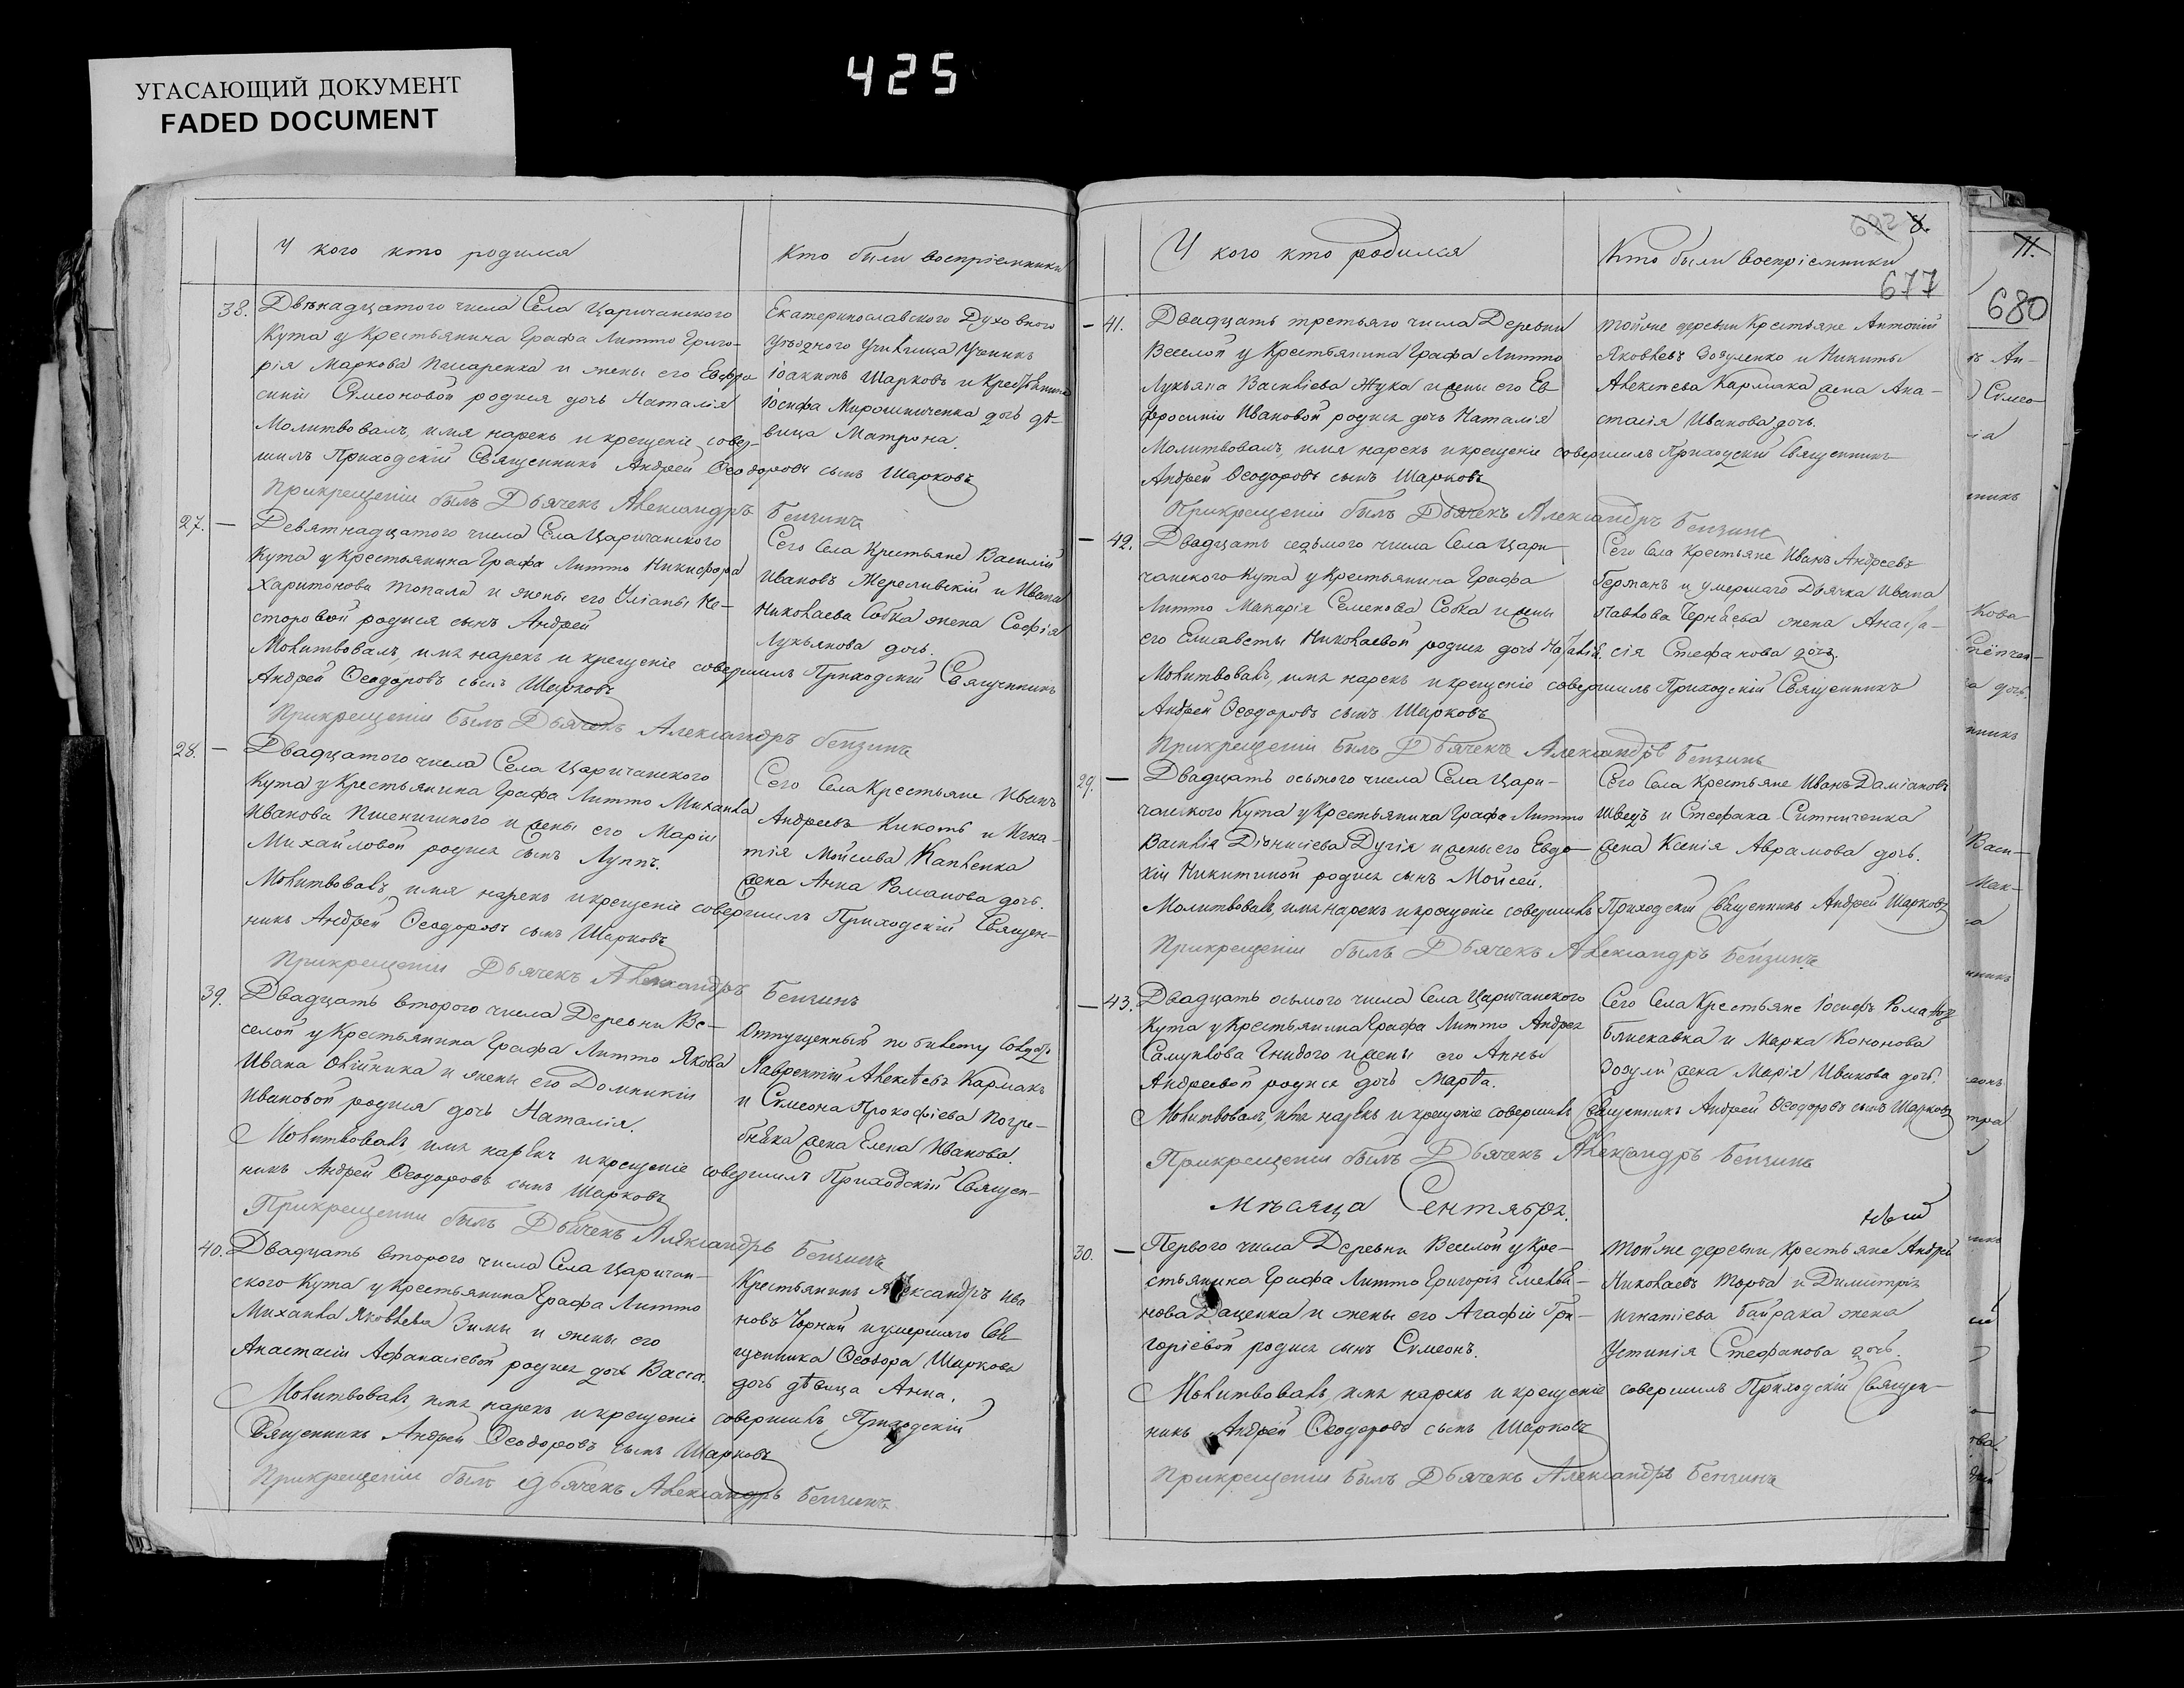 425
УГАСАЮЩИЙ ДОКУМЕНТ
FADED DOCUMENT
У кого кто родился
Кто были воспріемники
38. Двѣнадцатого числа Села Царичанского
Кута у Крестьянина Графа Литто Григо-
рія Маркова Писаренка и жены его Евфро
синіи Сѵмеоновой родися дочь Наталія
Екатеринославского Духовного
уѣздного Училища Ученикъ
Іоакимъ Шарковъ и Крестьянина
Іосифа Мирошниченка дочь дѣ-
вица Матрона.
Молитвовалъ, имя нарекъ и крещеніе совер-
шилъ Приходскій Священникъ Андрей Ѳеодоровъ сынъ Шарковъ
Прикрещеніи былъ Дьячекъ Александръ Бензинъ
27. — Девятнадцатого числа Села Царичанского
Кута у Крестьянина Графа Литто Никифора
Харитонова Топала и жены его Уліаны Не-
сторовой родися сынъ Андрей
Сего Села Крестьяне Василій
Ивановъ Жереливскій и Ивана
Николаева Собка жена Софія
Лукьянова дочь.
Молитвовалъ, имя нарекъ и крещеніе совершилъ Приходскій Священникъ
Андрей Ѳеодоровъ сынъ Шарковъ
Прикрещеніи былъ Дьячекъ Александръ Бензинъ
28. — Двадцатого числа Села Царичанского
Кута у Крестьянина Графа Литто Михаила
Иванова Пшеничного и жены его Маріи
Михайловой родися сынъ Луппъ.
Сего Села Крестьяне Иванъ
Андреевъ Кикоть и Игна-
тія Мойсеева Капленка
жена Анна Романова дочь.
Молитвовалъ, имя нарекъ и крещеніе совершилъ Приходскій Священ-
никъ Андрей Ѳеодоровъ сынъ Шарковъ
Прикрещеніи Дьячекъ Александръ Бензинъ
39. Двадцать второго числа Деревни Ве-
селой у Крестьянина Графа Литто Якова
Ивана Олійника и жены его Домникіи
Ивановой родися дочь Наталія.
Отпущенный по билету Солдатъ
Лаврентій Алексѣевъ Кармакъ
и Сѵмеона Прокофіева Погре-
бняка жена Елена Иванова.
Молитвовалъ, имя нарекъ и крещеніе совершилъ Приходскій Священ-
никъ Андрей Ѳеодоровъ сынъ Шарковъ
Прикрещеніи былъ Дьячекъ Александръ Бензинъ
40. Двадцать второго числа Села Царичан-
ского Кута у Крестьянина Графа Литто
Михаила Яковлева Зимы и жены его
Анастасіи Афанасіевой родися дочь Васса.
Крестьянинъ Александръ Ива
новъ Чорный и умершаго Свя
щенника Ѳеодора Шаркова
дочь дѣвица Анна.
Молитвовалъ, имя нарекъ и крещеніе совершилъ Приходскій
Священникъ Андрей Ѳеодоровъ сынъ Шарковъ
Прикрещеніи былъ Дьячекъ Александръ Бензинъ
У кого кто родился
Кто были воспріемники
692 8.
677
— 41. Двадцать третьяго числа Деревни
Веселой у Крестьянина Графа Литто
Лукьяна Василіева Жука и жены его Ев
фросиніи Ивановой родися дочь Наталія
тойже деревни Крестьяне Антоній
Яковлевъ Зозуленко и Никиты
Алексѣева Кармака жена Ана-
стасія Иванова дочь.
Молитвовалъ, имя нарекъ и крещеніе совершилъ Приходскій Священникъ
Андрей Ѳеодоровъ сынъ Шарковъ
Прикрещеніи былъ Дьячекъ Александръ Бензинъ
— 42. Двадцать седьмого числа Села Цари
чанского Кута у Крестьянина Графа
Литто Макарія Семенова Собка и жены
его Елисаветы Николаевой родися дочь Наталія.
Сего Села Крестьяне Иванъ Андреевъ
Германъ и умершаго Дьячка Ивана
Павлова Чернѣева жена Анаста-
сія Стефанова дочь.
Молитвовалъ, имя нарекъ и крещеніе совершилъ Приходскій Священникъ
Андрей Ѳеодоровъ сынъ Шарковъ
Прикрещеніи былъ Дьячекъ Александръ Бензинъ
29. — Двадцать осьмого числа Села Цари-
чанского Кута у Крестьянина Графа Литто
Василія Діонисіева Дугія и жены его Евдо-
кіи Никитиной родися сынъ Мойсей.
Сего Села Крестьяне Иванъ Даміановъ
Швецъ и Стефана Ситниченка
жена Ксенія Аврамова дочь.
Молитвовалъ, имя нарекъ и крещеніе совершилъ Приходскій Священникъ Андрей Шарковъ
Прикрещеніи былъ Дьячекъ Александръ Бензинъ
— 43. Двадцать осьмого числа Села Царичанского
Кута у Крестьянина Графа Литто Андрея
Самуилова Гнидого и жены его Анны
Андреевой родися дочь Марѳа.
Сего Села Крестьяне Іосифъ Романовъ
Блискавка и Марка Кононова
Зозули жена Марія Иванова дочь.
Молитвовалъ, имя нарекъ и крещеніе совершилъ Священникъ Андрей Ѳеодоровъ сынъ Шарковъ
Прикрещеніи былъ Дьячекъ Александръ Бензинъ
Мѣсяца Сентября.
30. — Первого числа Деревни Веселой у Кре-
стьянина Графа Литто Григорія Емелья-
нова Даценка и жены его Агафіи Гри-
горіевой родися сынъ Сѵмеонъ.
тойже деревни Крестьяне Андрей
Николаевъ Торба и Димитрія
Игнатіева Байрака жена
Устинія Стефанова дочь.
Молитвовалъ, имя нарекъ и крещеніе совершилъ Приходскій Священ-
никъ Андрей Ѳеодоровъ сынъ Шарковъ
Прикрещеніи былъ Дьячекъ Александръ Бензинъ
11.
680